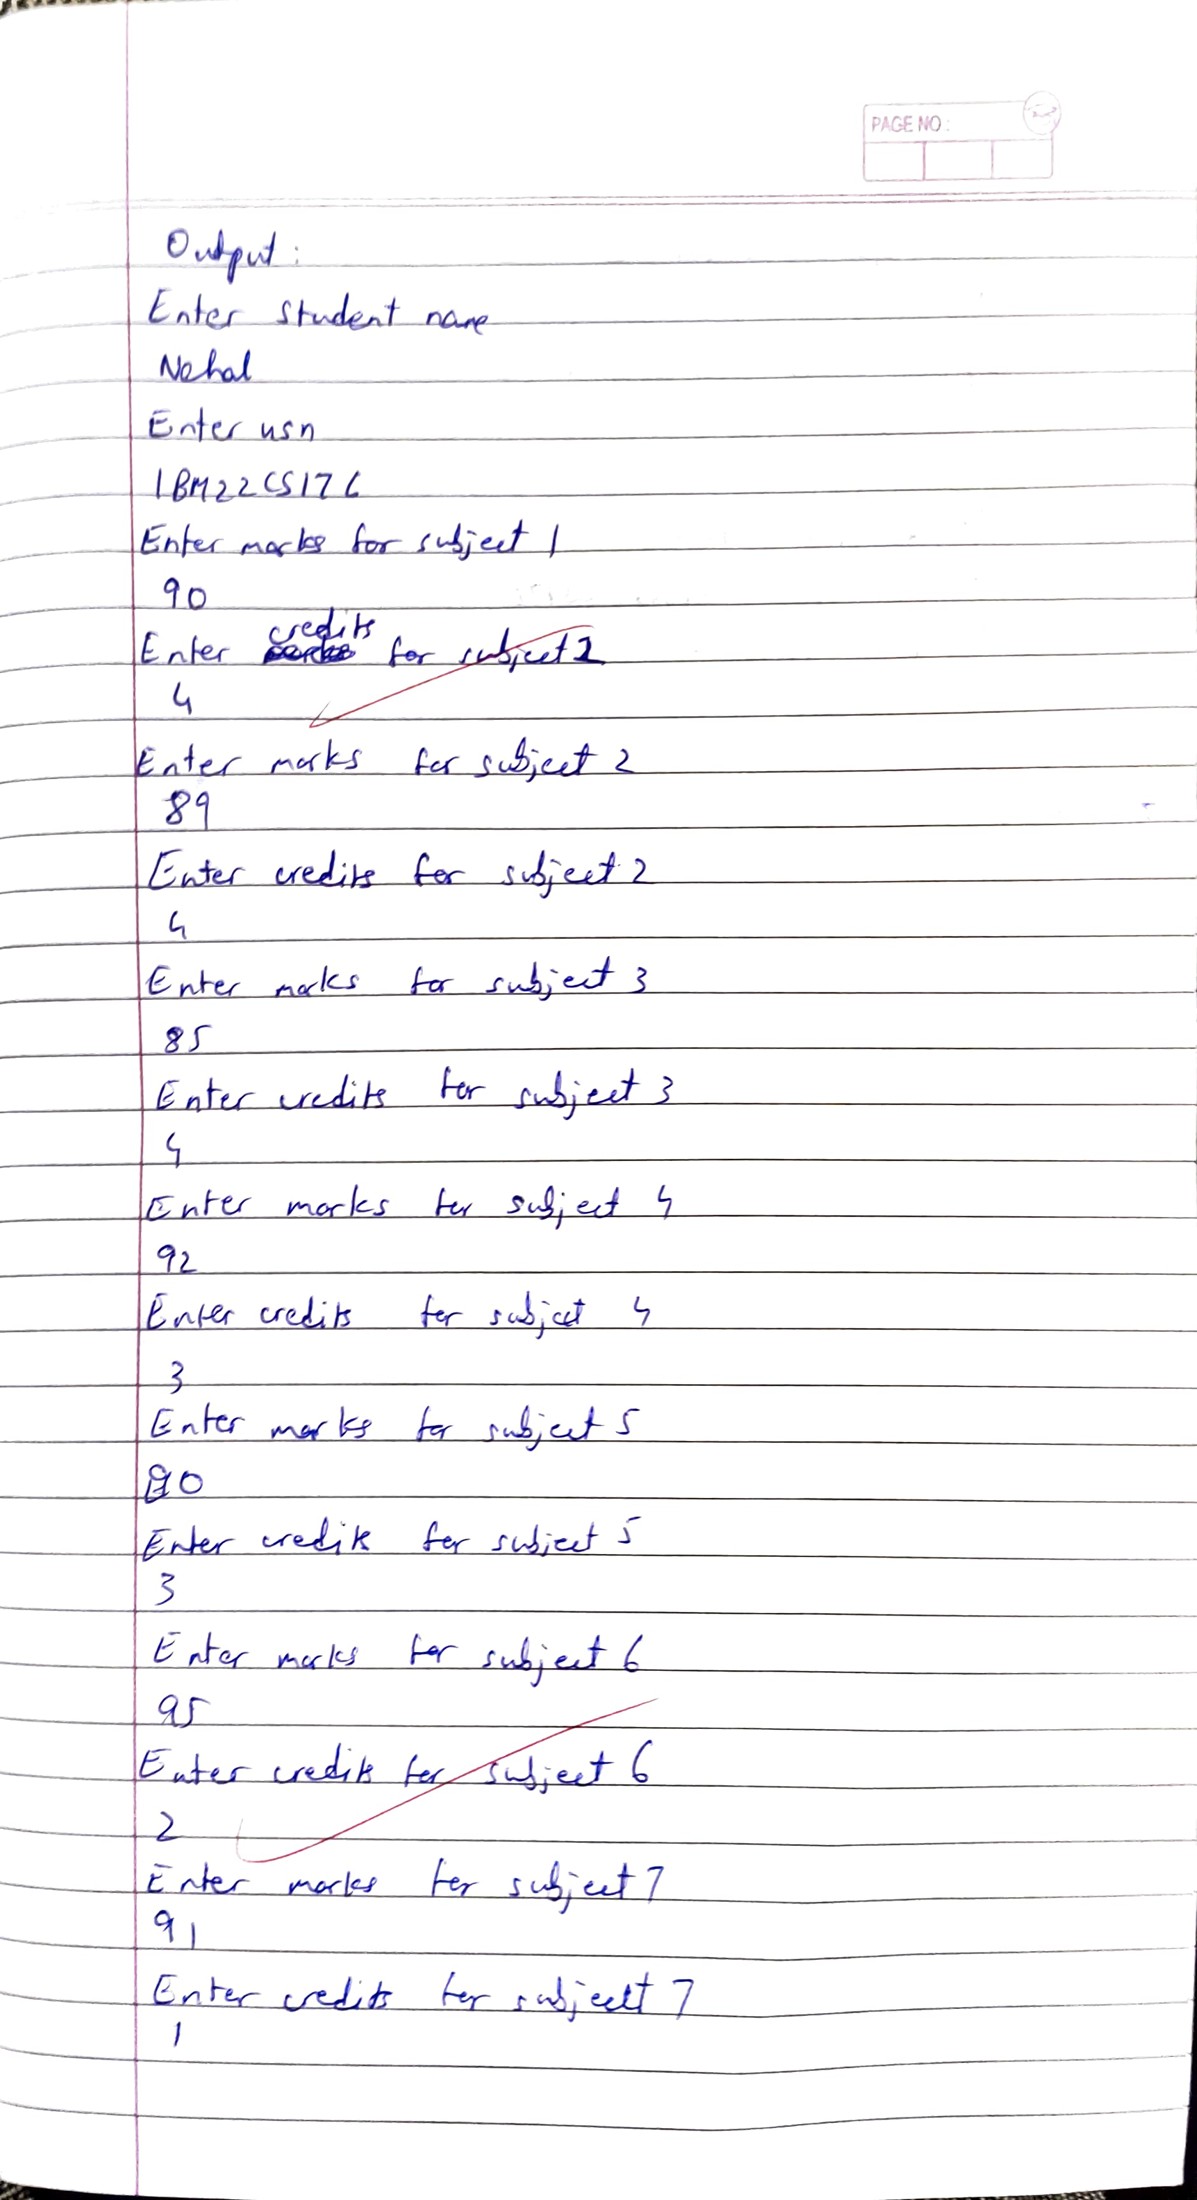 PAGE NO:
Output:
Enter student name
Nehal
Enter usn
1BM22CS176
Enter marks for subject 1
90
Enter credits for subject 1
4
Enter marks for subject 2
89
Enter credits for subject 2
4
Enter marks for subject 3
85
Enter credits for subject 3
4
Enter marks for subject 4
92
Enter credits for subject 4
3
Enter marks for subject 5
Enter credits for subject 5
3
Enter marks for subject 6
95
Enter credits for subject 6
2
Enter marks for subject 7
91
Enter credits for subject 7
1